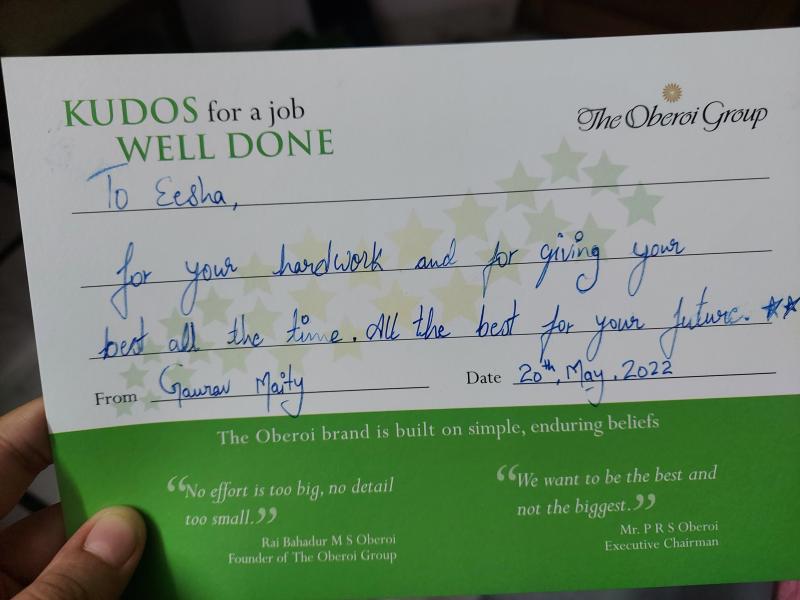 KUDOS for a job
WELL DONE
The Oberoi Group
To Eesha,
for your hardwork and for giving your
best all the time. All the best for your future.
From Gaurav Maity
Date 20th, May, 2022
The Oberoi brand is built on simple, enduring beliefs
“No effort is too big, no detail
too small.”
Rai Bahadur M S Oberoi
Founder of The Oberoi Group
“We want to be the best and
not the biggest.”
Mr. P R S Oberoi
Executive Chairman